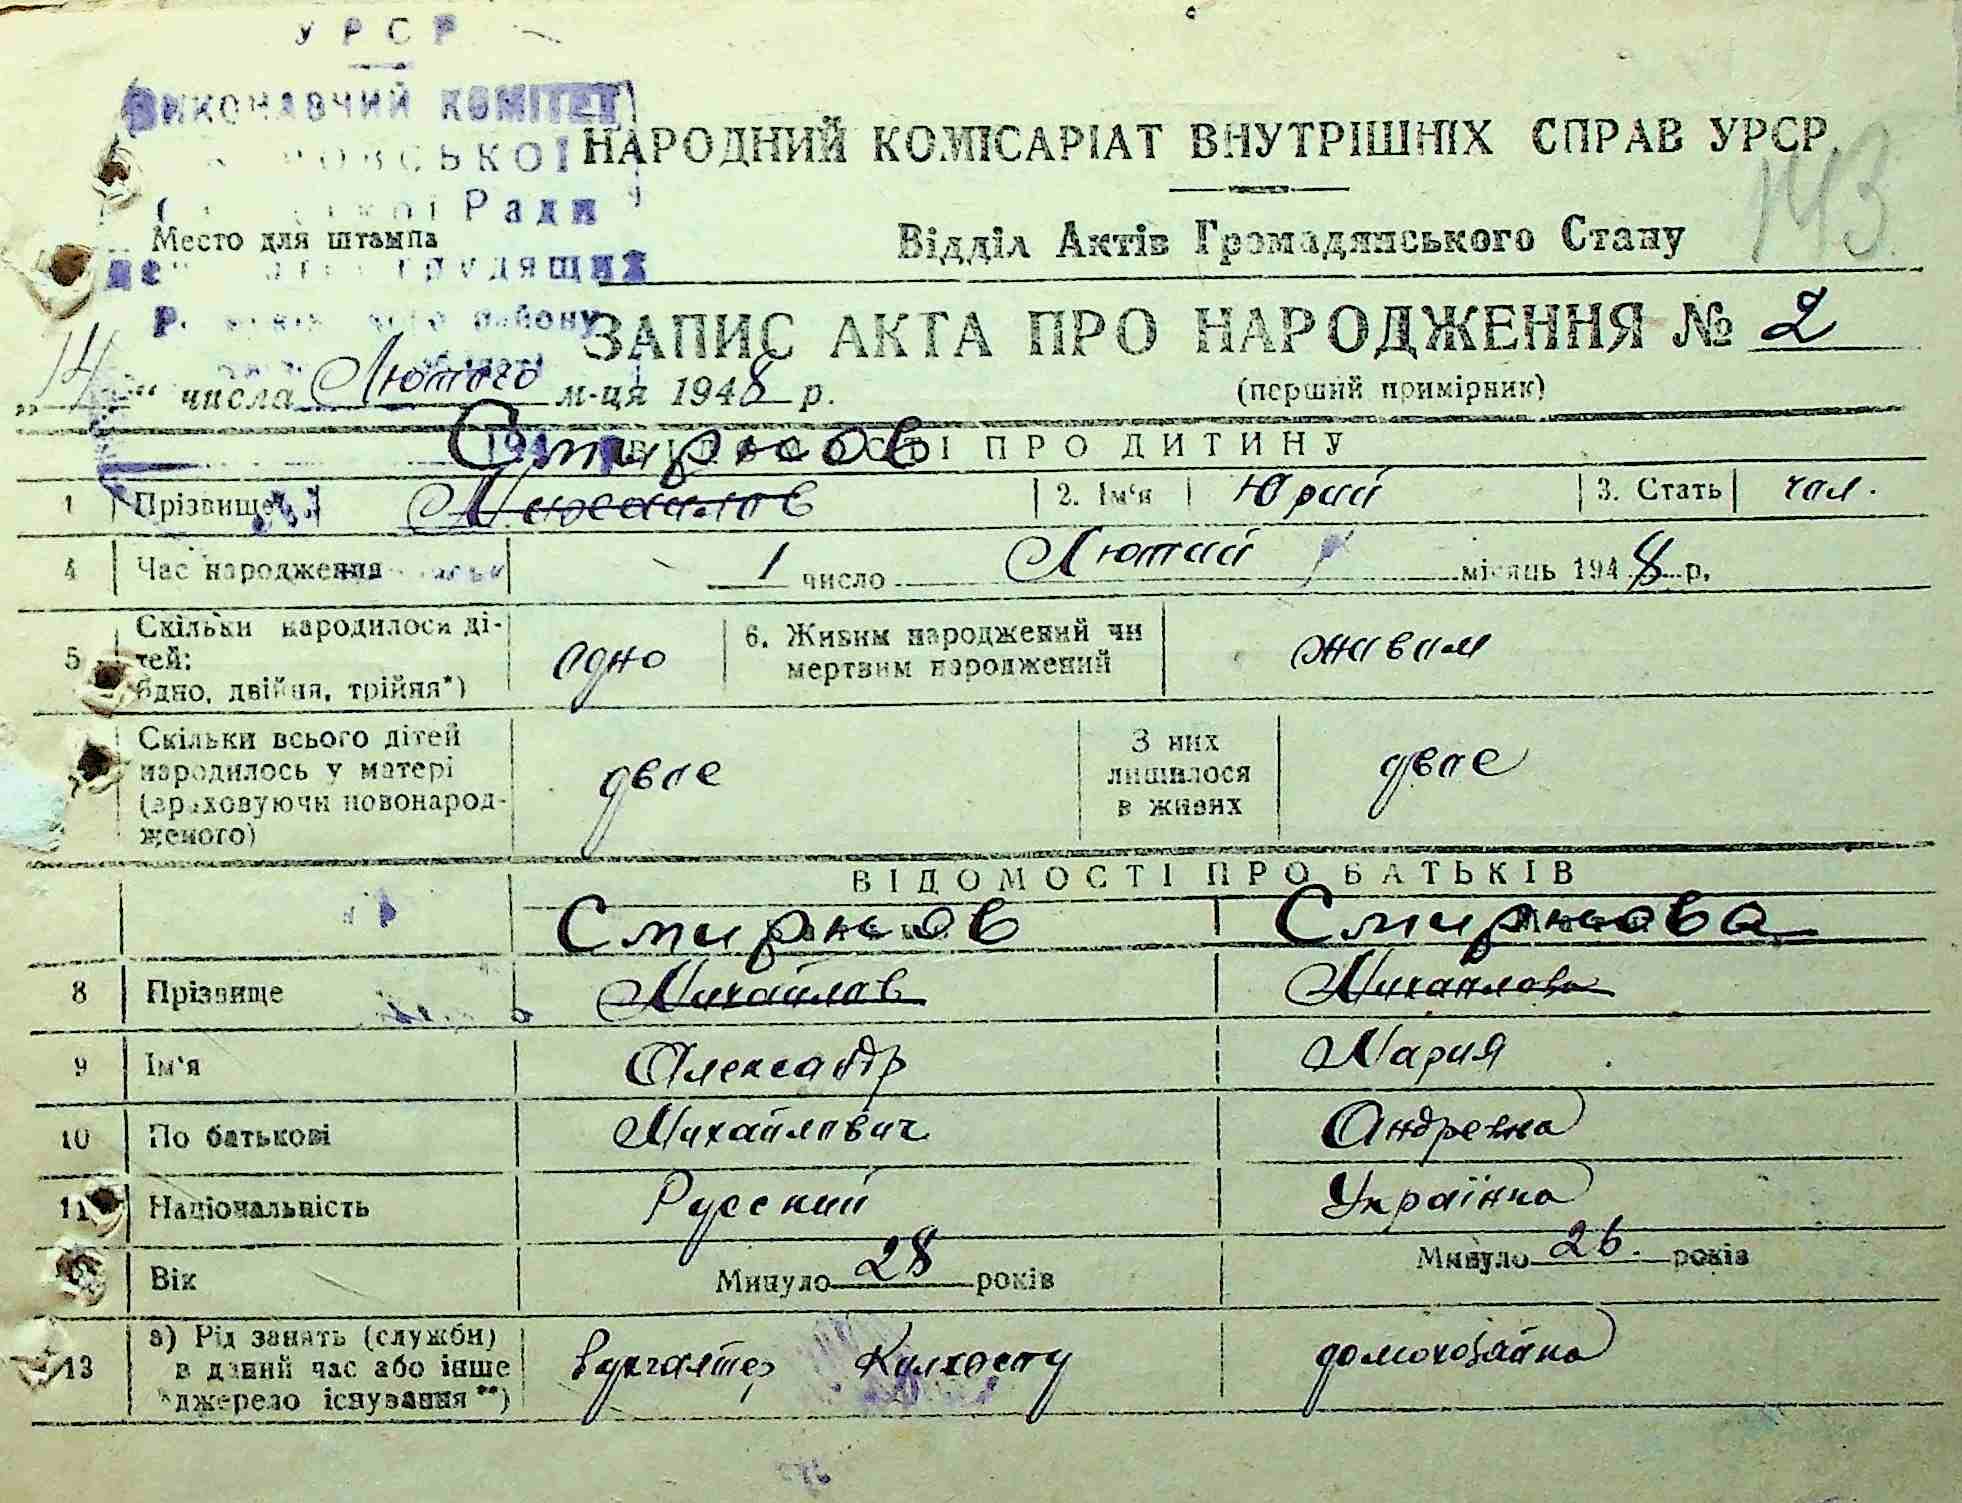 УРСР
ВИКОНАВЧИЙ КОМІТЕТ
НАРОДНИЙ КОМІСАРІАТ ВНУТРІШНІХ СПРАВ УРСР
143
Ради
Место для штампа
Відділ Актів Громадянського Стану
трудящих
району
ЗАПИС АКТА ПРО НАРОДЖЕННЯ № 2
(перший примірник)
„14“ числа Лютого м-ця 1948 р.
Смирнов
ПРО ДИТИНУ
1 Прізвище Михайлов 2. Ім'я Юрий 3. Стать чол.
4 Час народження 1 число Лютий місяць 1948 р.
5 Скільки народилося ді-
тей:
одно, двійня, трійня*)
одно
6. Живим народжений чи
мертвим народжений
живим
7 Скільки всього дітей
народилось у матері
(враховуючи новонарод-
женого)
двое
З них
лишилося
в живих
двое
ВІДОМОСТІ ПРО БАТЬКІВ
Смирнов Смирнова
8 Прізвище Михайлов Михайлова
9 Ім'я Олександр Мария
10 По батькові Михайлович Андреевна
11 Національність Русский Українка
12 Вік Минуло 28 років Минуло 26. років
13 а) Рід занять (служби)
в даний час або інше
джерело існування**)
Бухгалтер Колхоспу домохозяйка